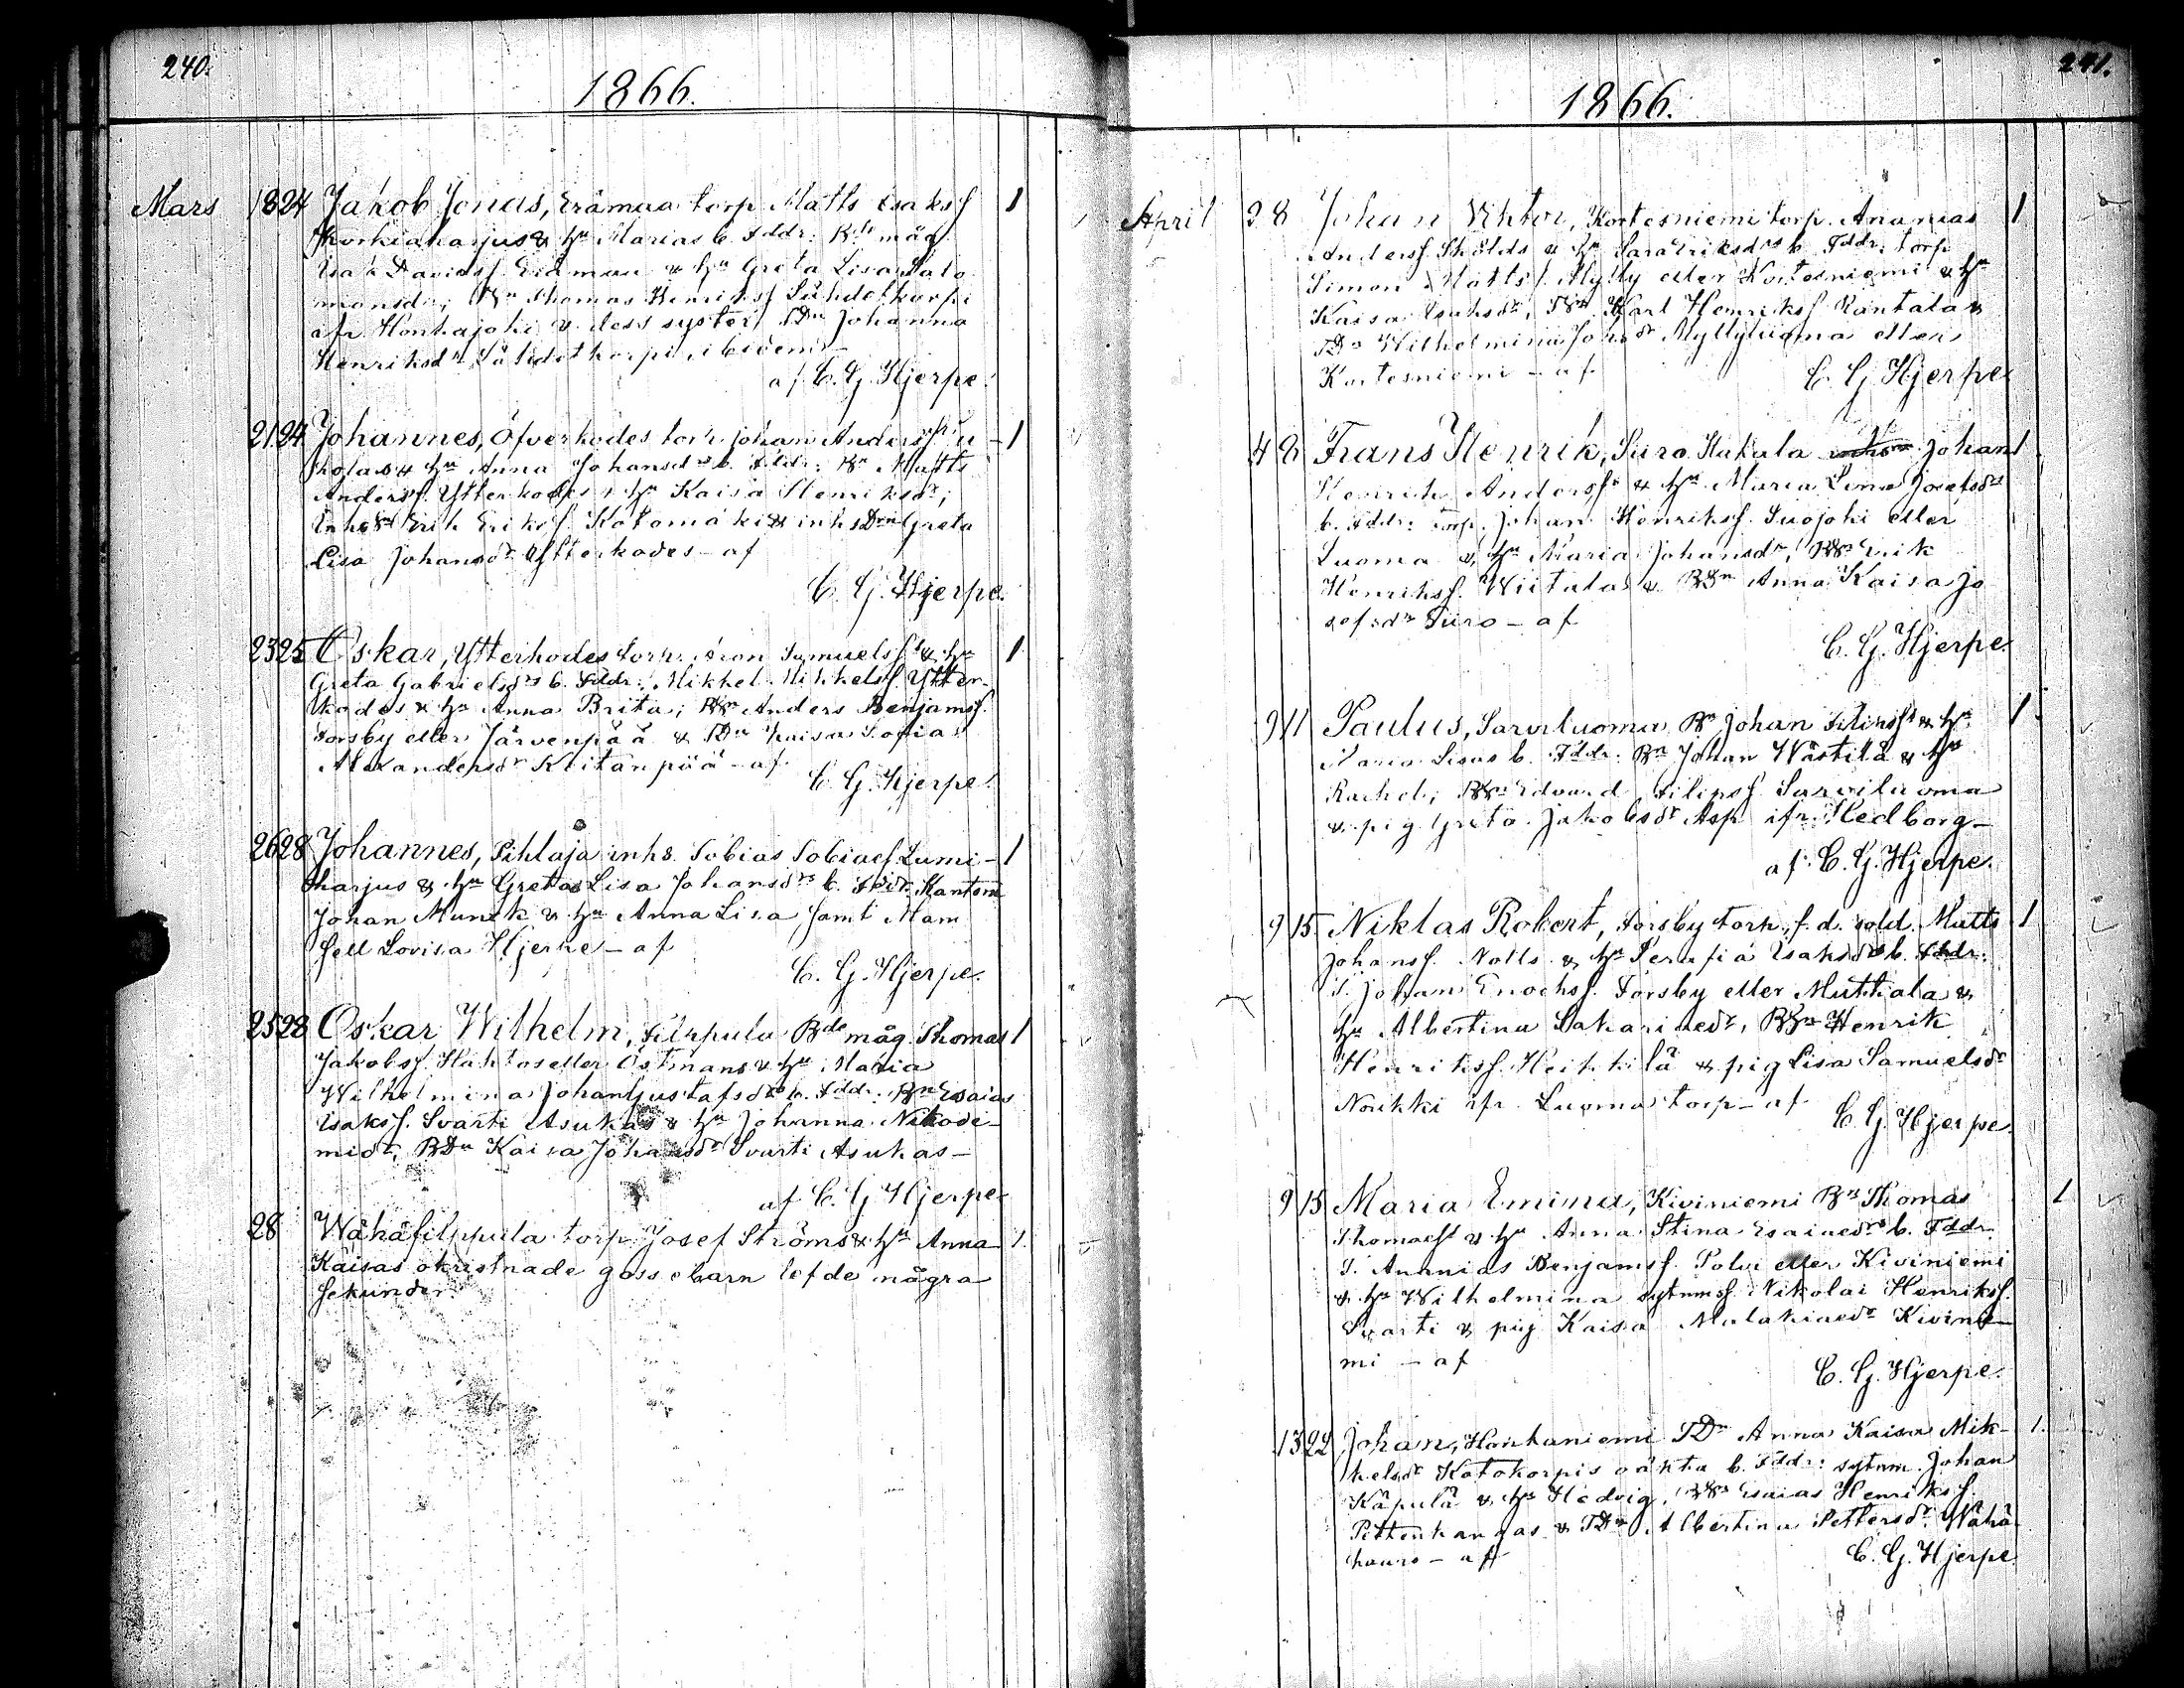 240.
1866.
Mars 18 24 Jakob Jonas, Erämaa torp. Matts Isaksf 1
Korkiaharjus & hu Marias b. Fddr: Bde måg
Isak Davidsf. Erämaa & hu Greta Lisa Salo
monsdr; Thomas Henriksf Lähdetkorpi
ifr Honkajoki & dess syster TDn Johanna
Henriksdr Lähdetkorpi ibidem -
af C. G. Hjerpe.
21 24 Johannes, Öfverkodes torp. Johan Andersf 1
& hu Anna Johansdrs b. Fddr: Bn Matts
Andersf. Ytterkodes & hu Kaisa Henriksdr;
Erik Eriksf. Kotomäki & inhs Dn Greta
Lisa Johansdr Ytterkodes - af
C. G. Hjerpe.
23 25 Oskar, Ytterkodes torp. Aron Samuelsfs & hu 1
Greta Gabrielsdrs b. Fddr: Mikkel Mikkelsf. Ytter-
kodes & hu Anna Brita; Anders Benjamsf.
Forsby eller Järvenpää & TDn Kaisa Sofia
Alexandersdr Keitanpää - af
C. G. Hjerpe.
26 28 Johannes, Pihlaja inhs. Tobias Tobiaef. Lumi- 1
harjus & hu Greta Lisa Johansdrs b. Fddr: Kantorn
Johan Munck & hu Anna Lisa samt Mam
sell Lovisa Hjerpe - af
C. G. Hjerpe.
25 28 Oskar Wilhelm, Filppula Bde måg Thomas 1
Jakobsf. Hahtos eller Östmans & hu Maria
Wilhelmina Johan Gustafsdrs b. Fddr: Bn Esaias
Isaksf. Svarti Asukas & hu Johanna Nikode-
midr, BDn Kaisa Johansdr Svarti Asukas -
af C. G. Hjerpe
28 Wähäfilppula torp. Josef Ströms & hu Anna 1.
Kaisas okristnade gossebarn lefde några
sekunder.
241.
1866.
April 2 8 Johan Viktor, Kortesniemi torp. Ananias 1
Andersf. Skölds & hu Sara Eriksdrs b. Fddr: torp
Simon Mattsf. Mylly eller Kortesniemi & hu
Kaisa Isaksdr, Karl Henriksf Rantala &
TDn Wilhelmina Johsdr Myllyluoma eller
Kortesniemi - af
C. G. Hjerpe
4 8 Frans Henrik, Piiro Hakala Johan 1
Henrik Andersfs & hu Maria Lena Josefsdrs
b. Fddr: torp. Johan Henriksf. Suojoki eller
Luoma & hu Maria Johansdr, Erik
Henriksf. Wiitala & BDn Anna Kaisa Jo
sefsdr Piiro - af
C. G. Hjerpe.
9 11 Paulus, Sarviluoma Bn Johan Filipsfs & hu 1
Maria Lisas b. Fddr: Bn Johan Wästilä & hu
Rachel; Edvard Filipsf. Sarviluoma
& pig. Greta Jakobsdr Asp ifr. Hedborg -
af C. G. Hjerpe.
9 15 Niklas Robert, Forsby torp. f. d. sold. Matts 1
Johansf. Notts & hu Serafia Isaksdrs b. Fddr:
T. Johan Enochsf. Forsby eller Mukkala &
hu Albertina Sakariaedr, Henrik
Henriksf. Heikkilä & pig Lisa Samuelsdr
Noukki ifr. Luoma torp - af
C. G. Hjerpe.
9 15 Maria Emina, Kiviniemi Bn Thomas 1
Thomaefs & hu Anna Stina Esaiaedrs b. Fddr:
T. Ananias Benjamsf. Polvi eller Kiviniemi
& hu Wilhelmina sytnmsf. Nikolai Henriksf.
Svarti & pig Kaisa Malakiaedr Kivinie-
mi - af
C. G. Hjerpe.
13 22 Johan, Honkaniemi TDn Anna Kaisa Mik- 1.
kelsdr Kotokorpis oäkta b. Fddr: sytnm. Johan
Käpulä & hu Hedvig, Esaias Henriksf.
Pettenkangas & TDn Albertina Pettersdr Wähä
- af
C. G. Hjerpe